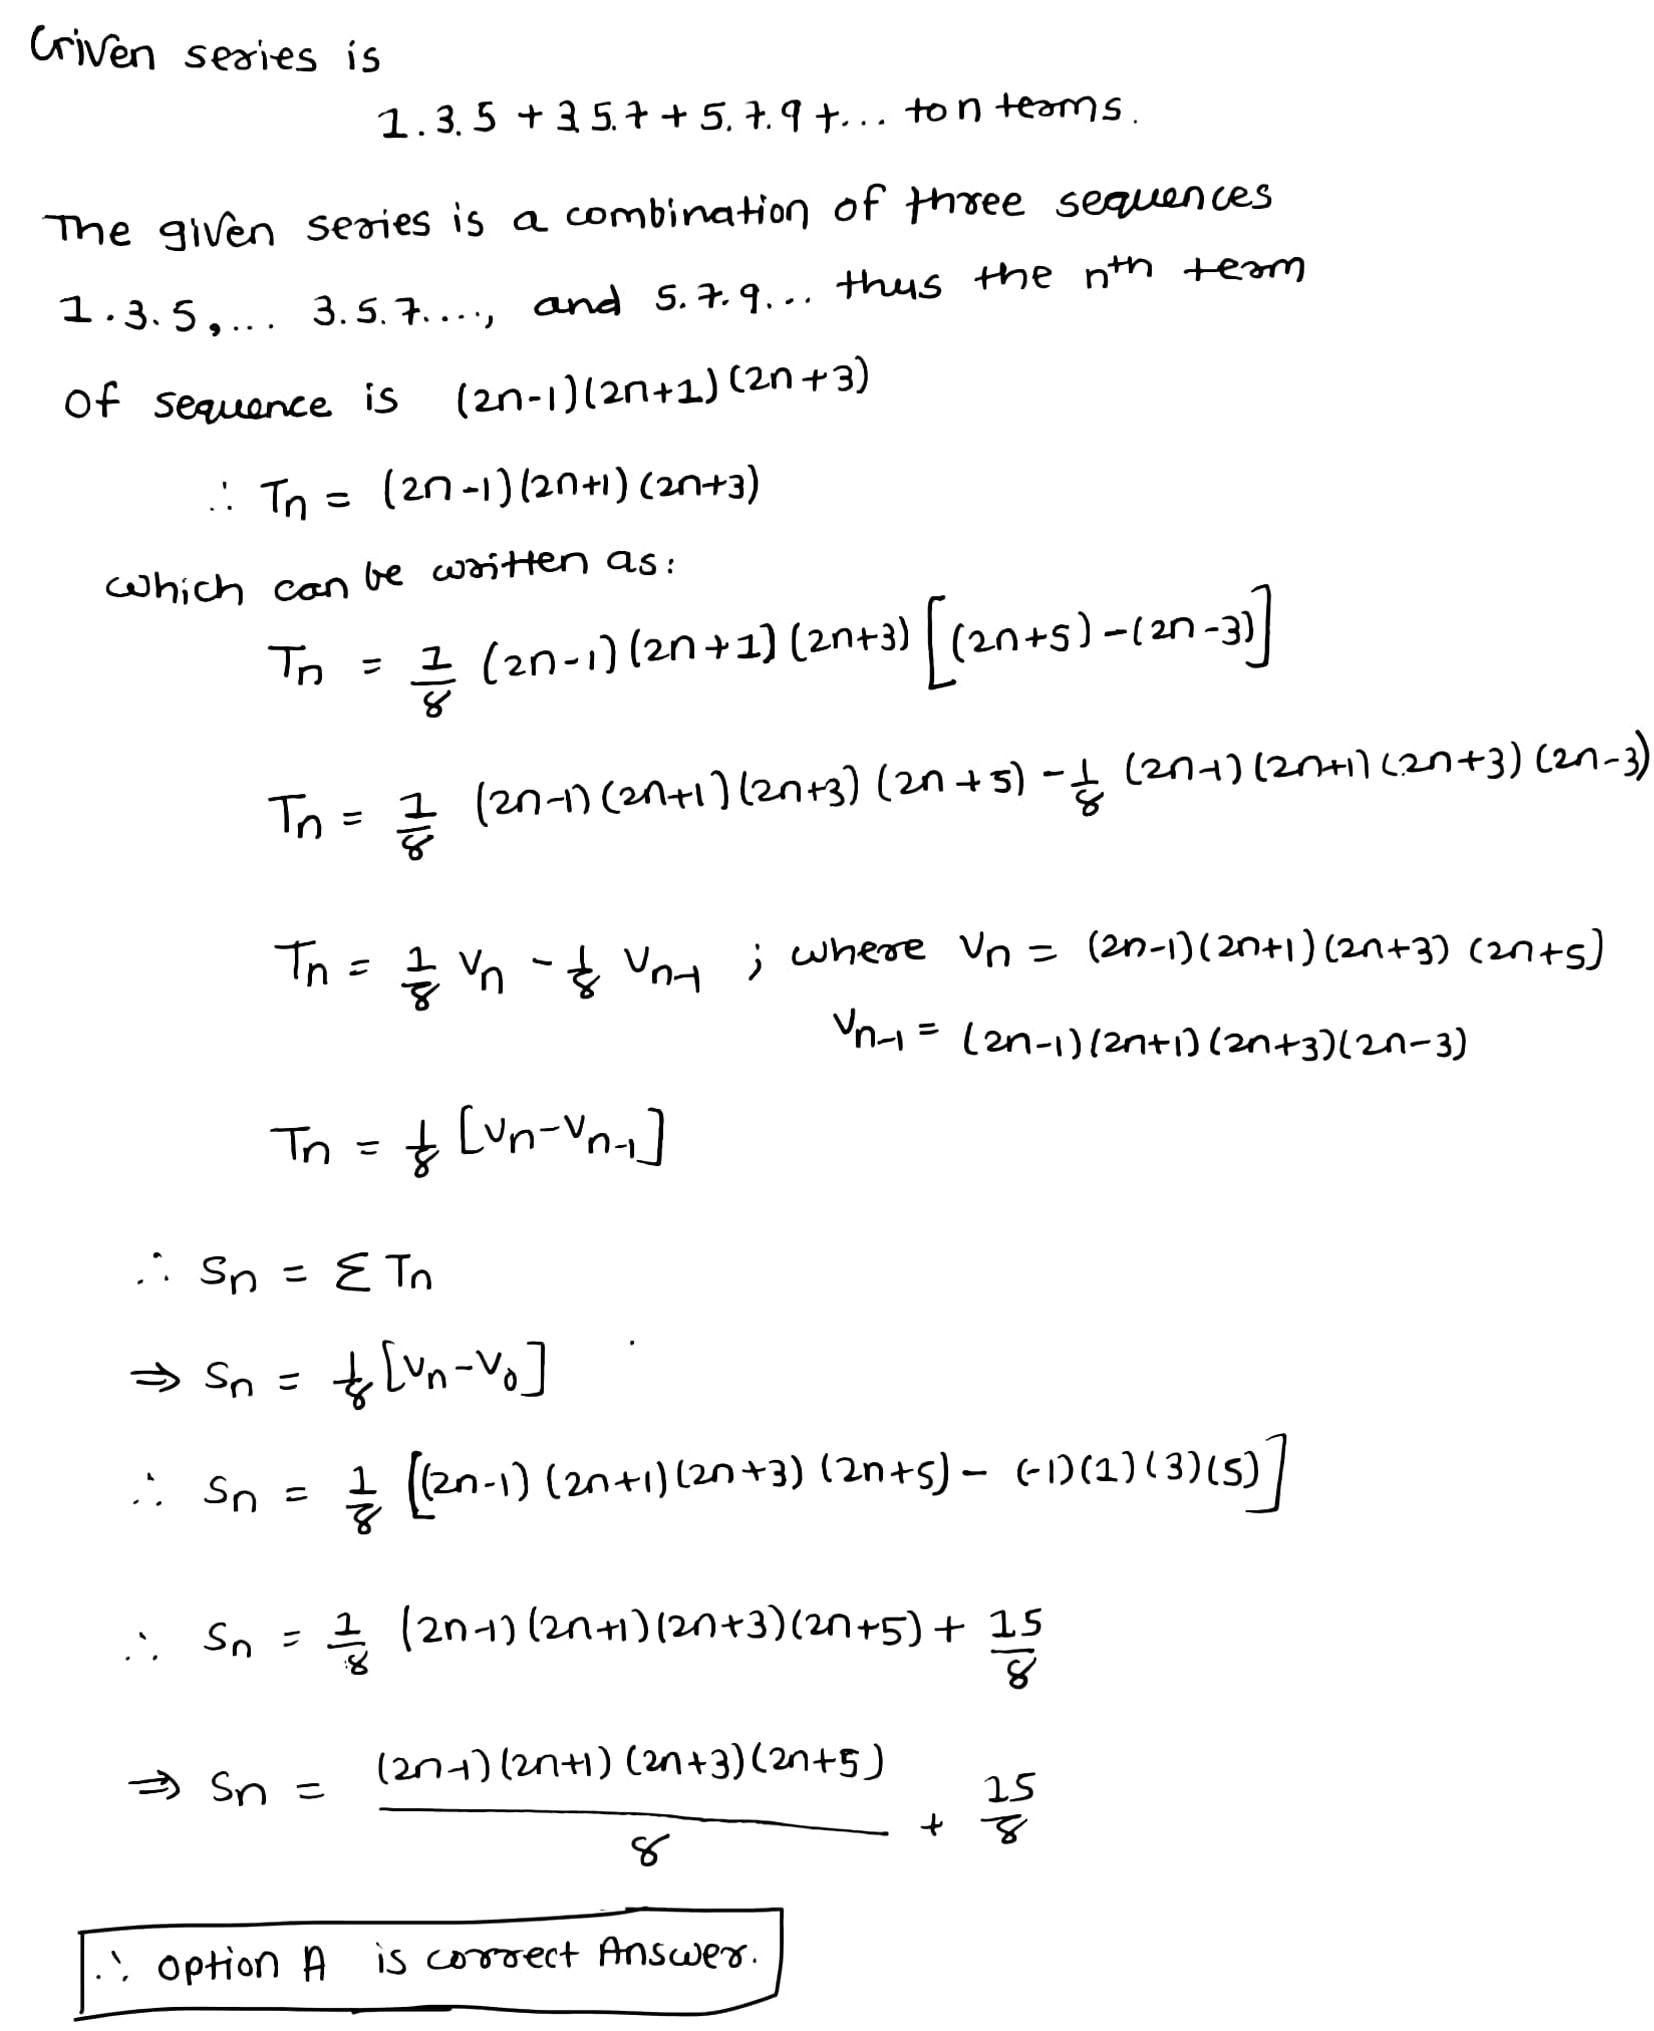 Given series is
1.3.5 + 3.5.7 + 5.7.9 + ... to n terms.
The given series is a combination of three sequences
1.3.5,... 3.5.7...., and 5.7.9... thus the nth term
of sequence is (2n-1)(2n+1)(2n+3)
∴ Tn = (2n-1)(2n+1)(2n+3)
which can be written as:
Tn = 1/8 (2n-1)(2n+1)(2n+3)[(2n+5)-(2n-3)]
Tn = 1/8 (2n-1)(2n+1)(2n+3)(2n+5) - 1/8 (2n-1)(2n+1)(2n+3)(2n-3)
Tn = 1/8 Vn - 1/8 Vn-1 ; where Vn = (2n-1)(2n+1)(2n+3)(2n+5)
Vn-1 = (2n-1)(2n+1)(2n+3)(2n-3)
Tn = 1/8 [Vn-Vn-1]
∴ Sn = Σ Tn
⇒ Sn = 1/8 [Vn-V0]
∴ Sn = 1/8 [(2n-1)(2n+1)(2n+3)(2n+5) - (-1)(1)(3)(5)]
∴ Sn = 1/8 (2n-1)(2n+1)(2n+3)(2n+5) + 15/8
⇒ Sn = (2n-1)(2n+1)(2n+3)(2n+5)/8 + 15/8
∴ option A is correct Answer.